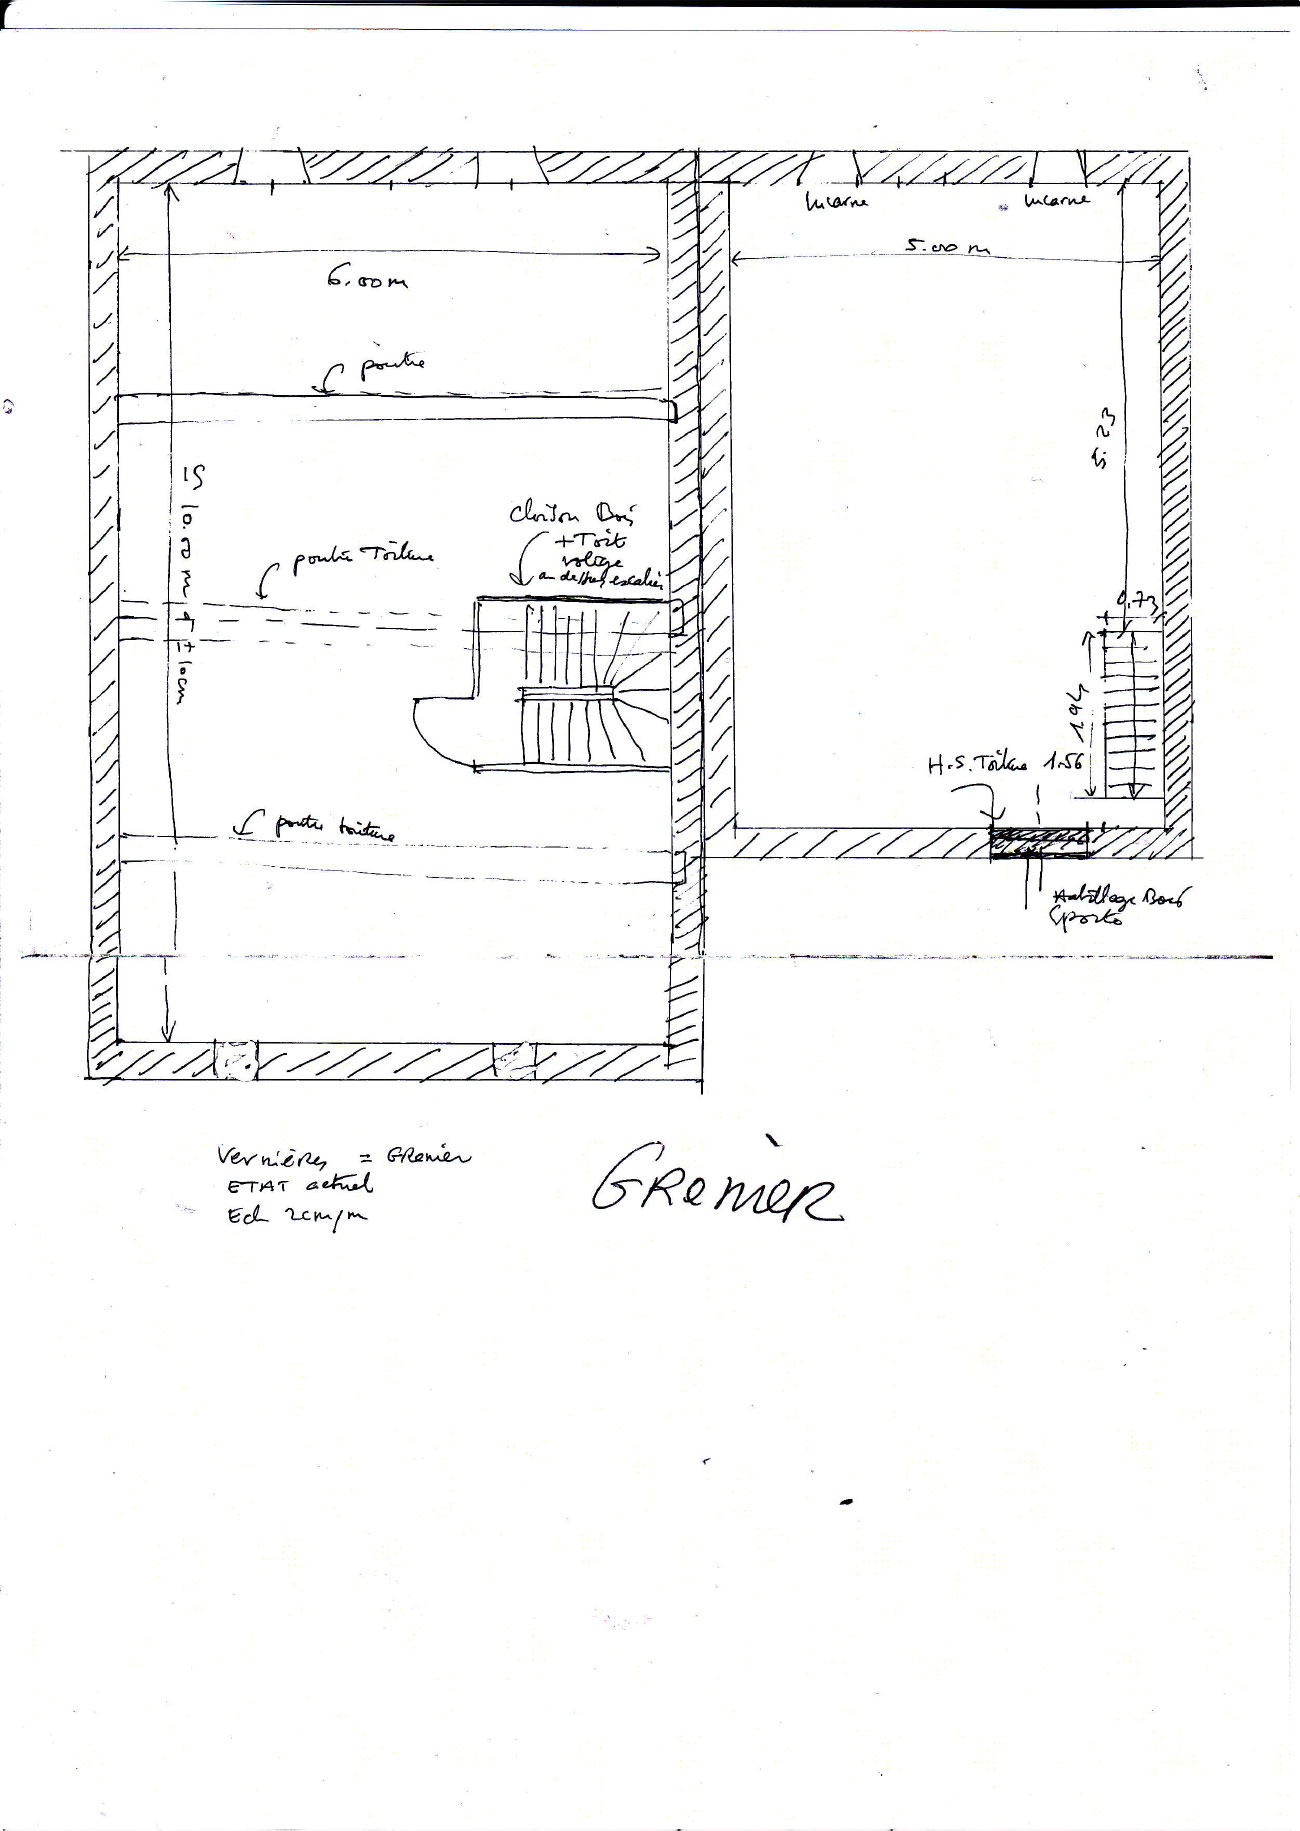 lucarne
lucarne
5.00 m
6.00 m
poutre
5.23
10.00 m ± 10cm
Cloison Bois
+ Toit
volige
au dessus escalier
poutre Toiture
0.73
1.94
H.S. Toiture 1.56
poutre toiture
Habillage Bois
Vernières = GRenier
ETAT actuel
Ech 2cm/m
GReniER